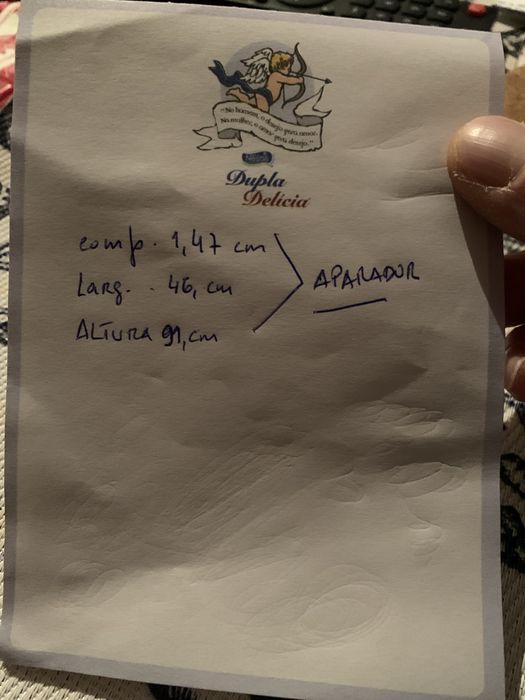 "No homem, o desejo gera amor.
Na mulher, o amor gera desejo."
Nestlé
Dupla
Delícia
comp. 1,47 cm
Larg. . 46, cm
APARADOR
ALTURA 91, cm